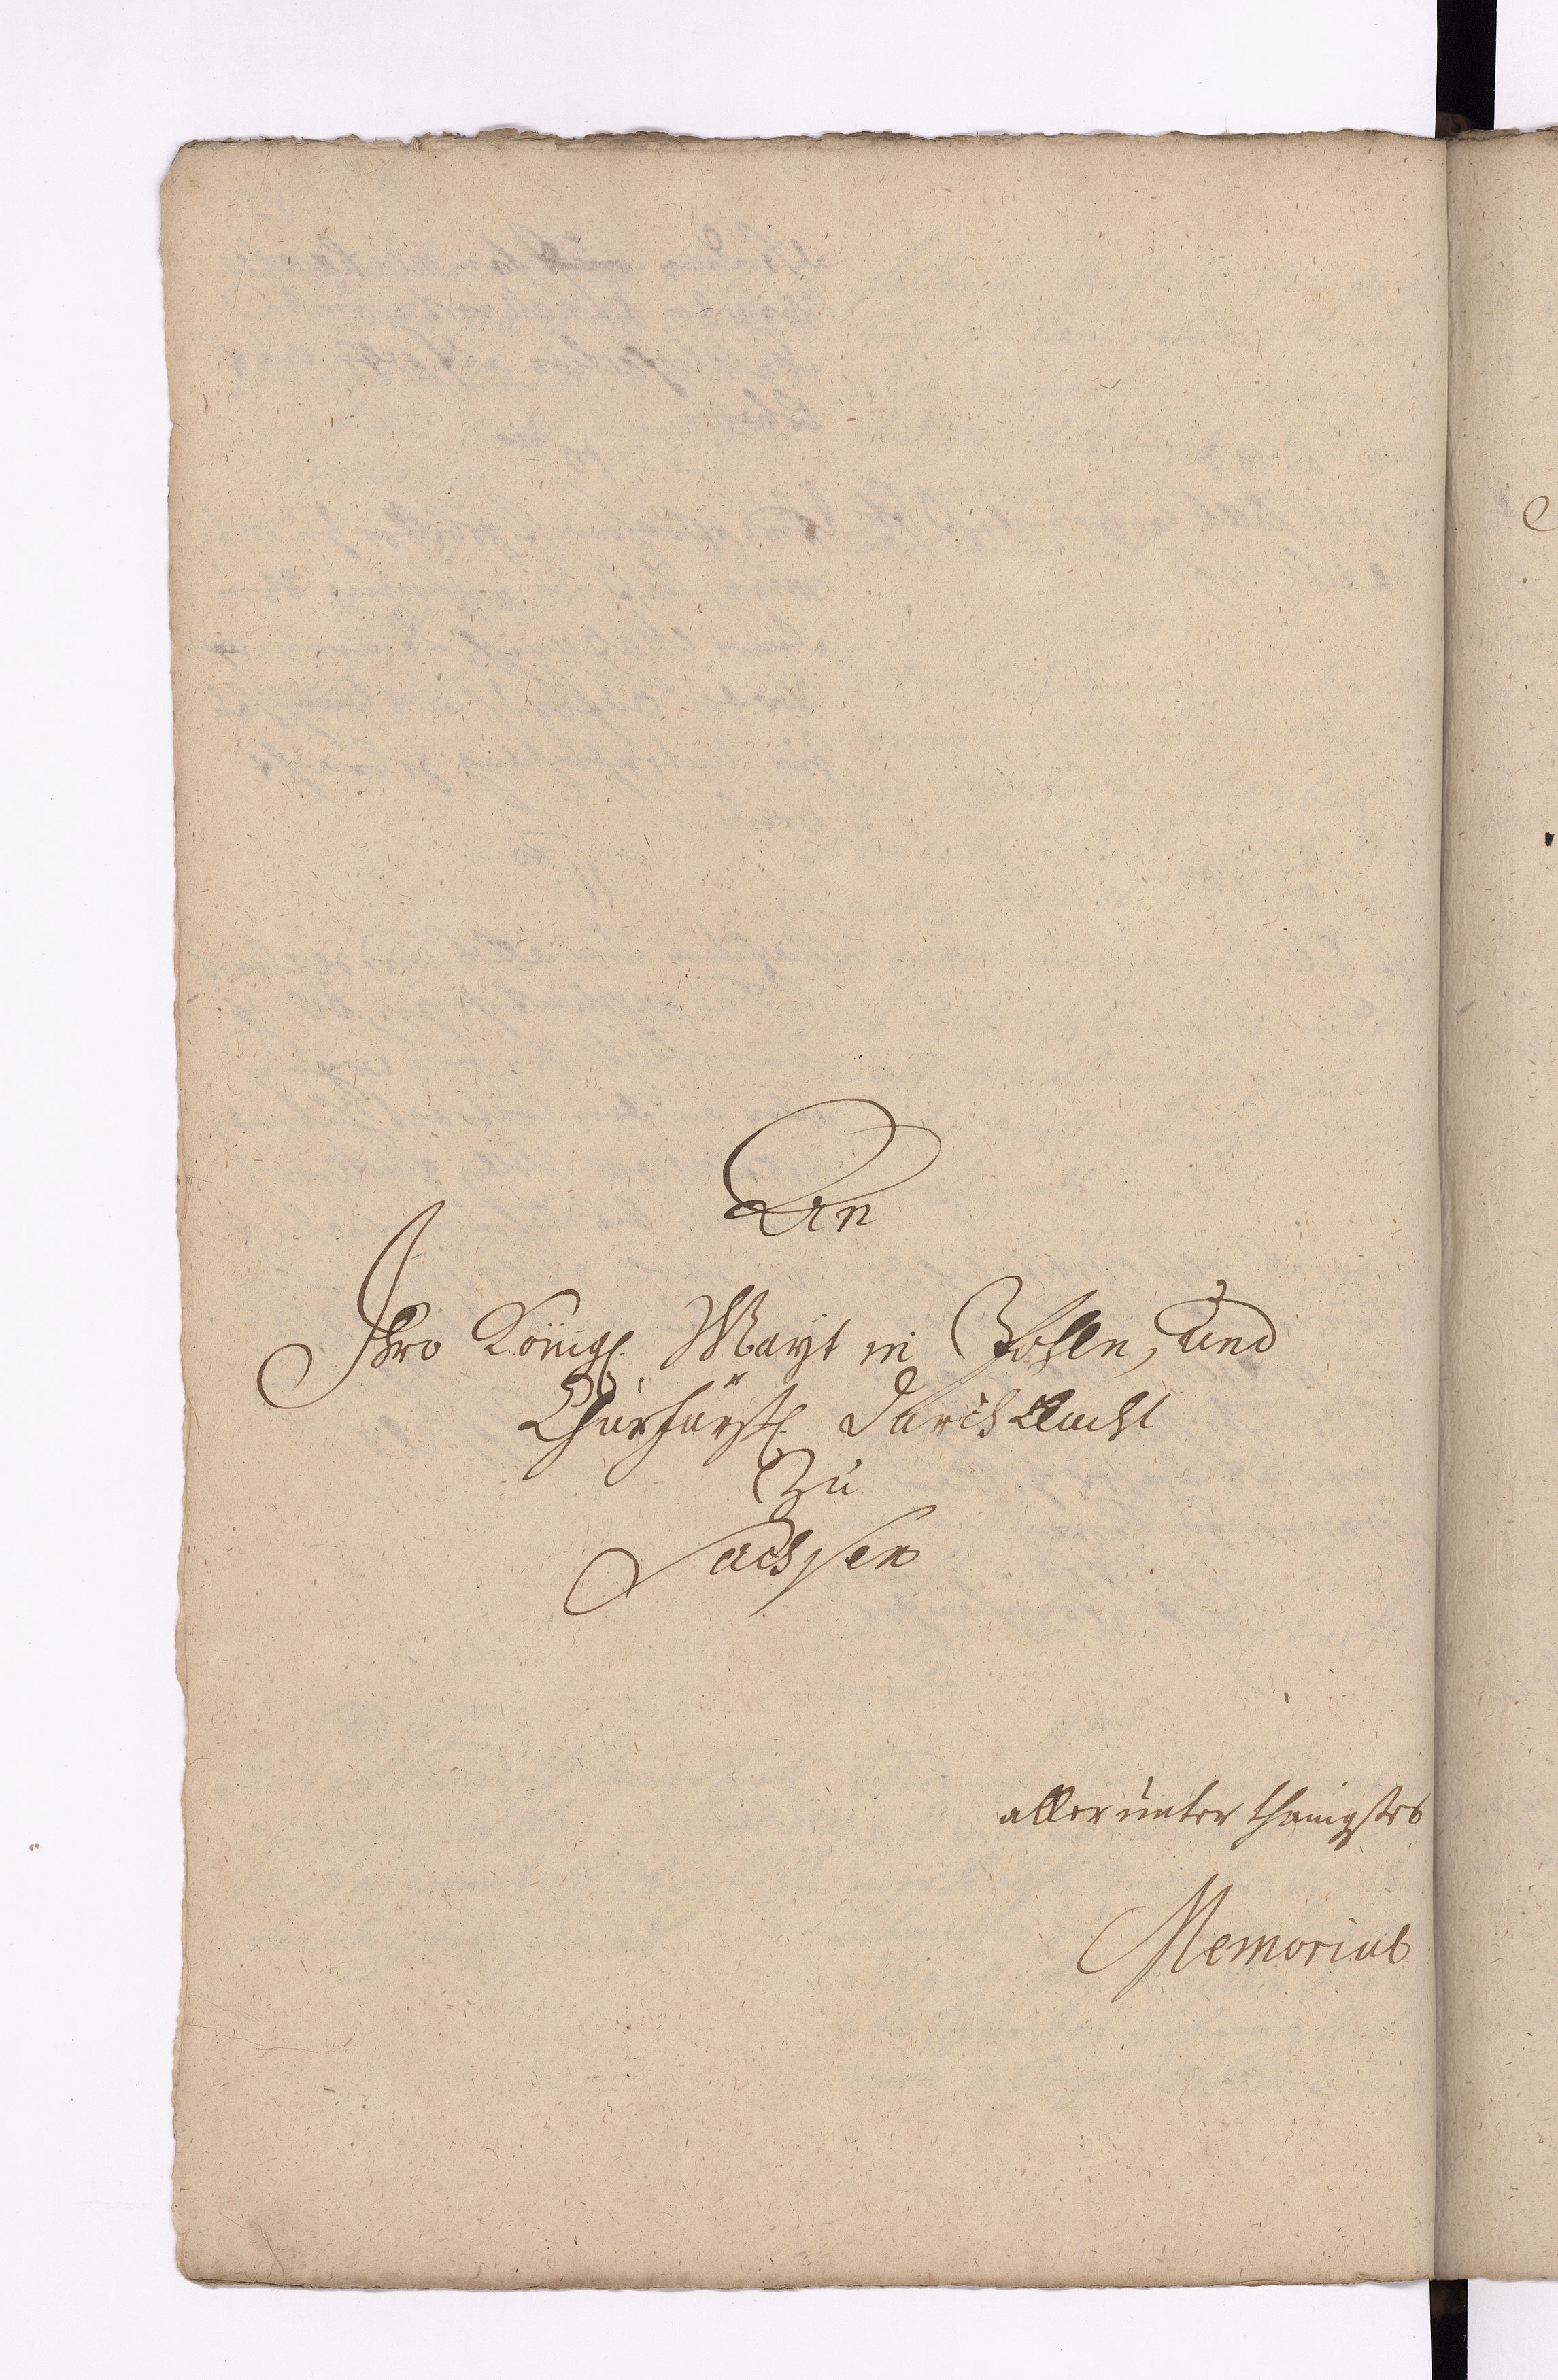 An
Ihro Königl. Mayt in Pohlen, und
Churfürstl. Durchlaucht
Zu
Sachsen
allerunterthänigstes
Memorial